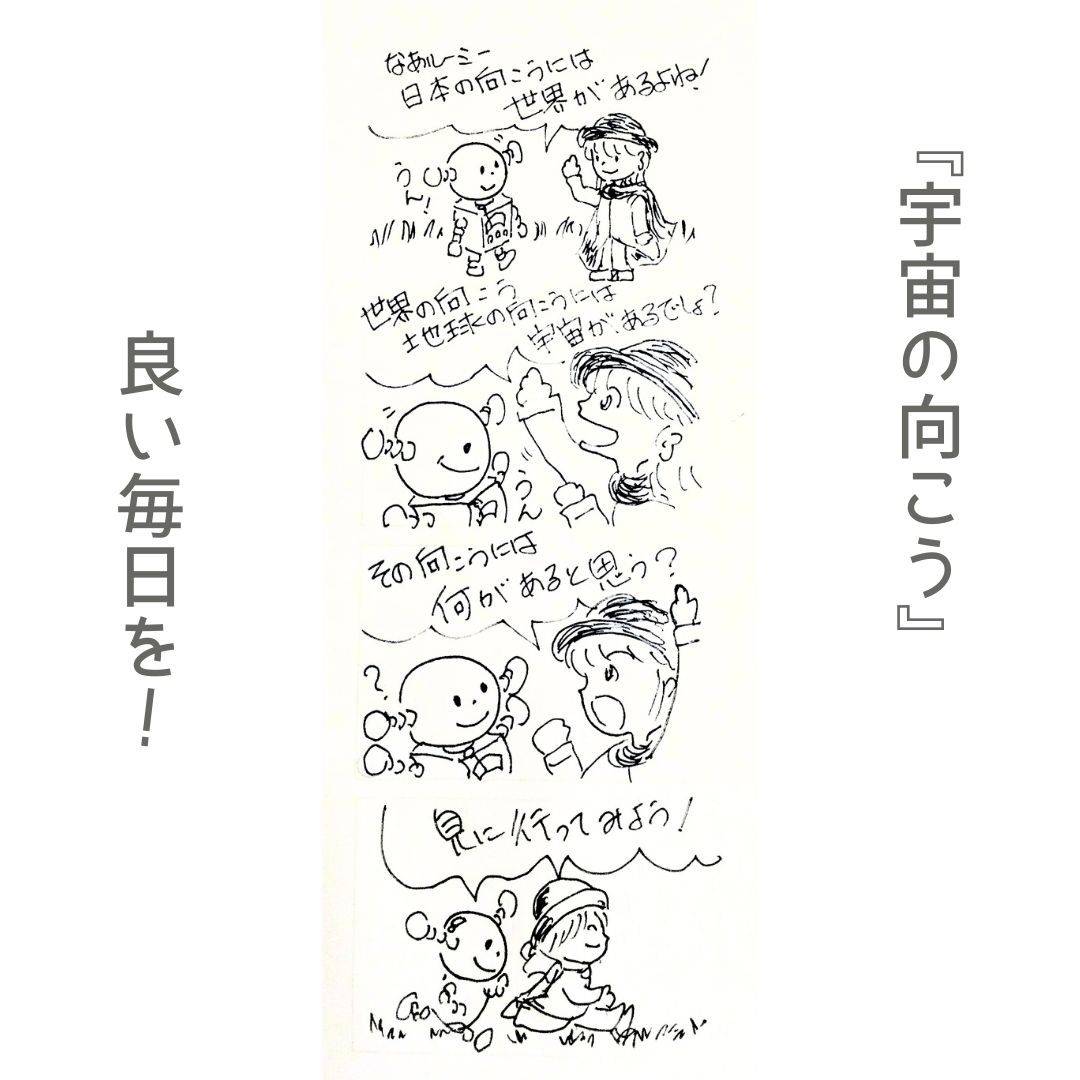 『宇宙の向こう』
なあルーミー
日本の向こうには
世界があるよね!
うん!
世界の向こう
地球の向こうには
宇宙があるでしょ?
うん
その向こうには
何があると思う?
?
見に行ってみよう!
良い毎日を!